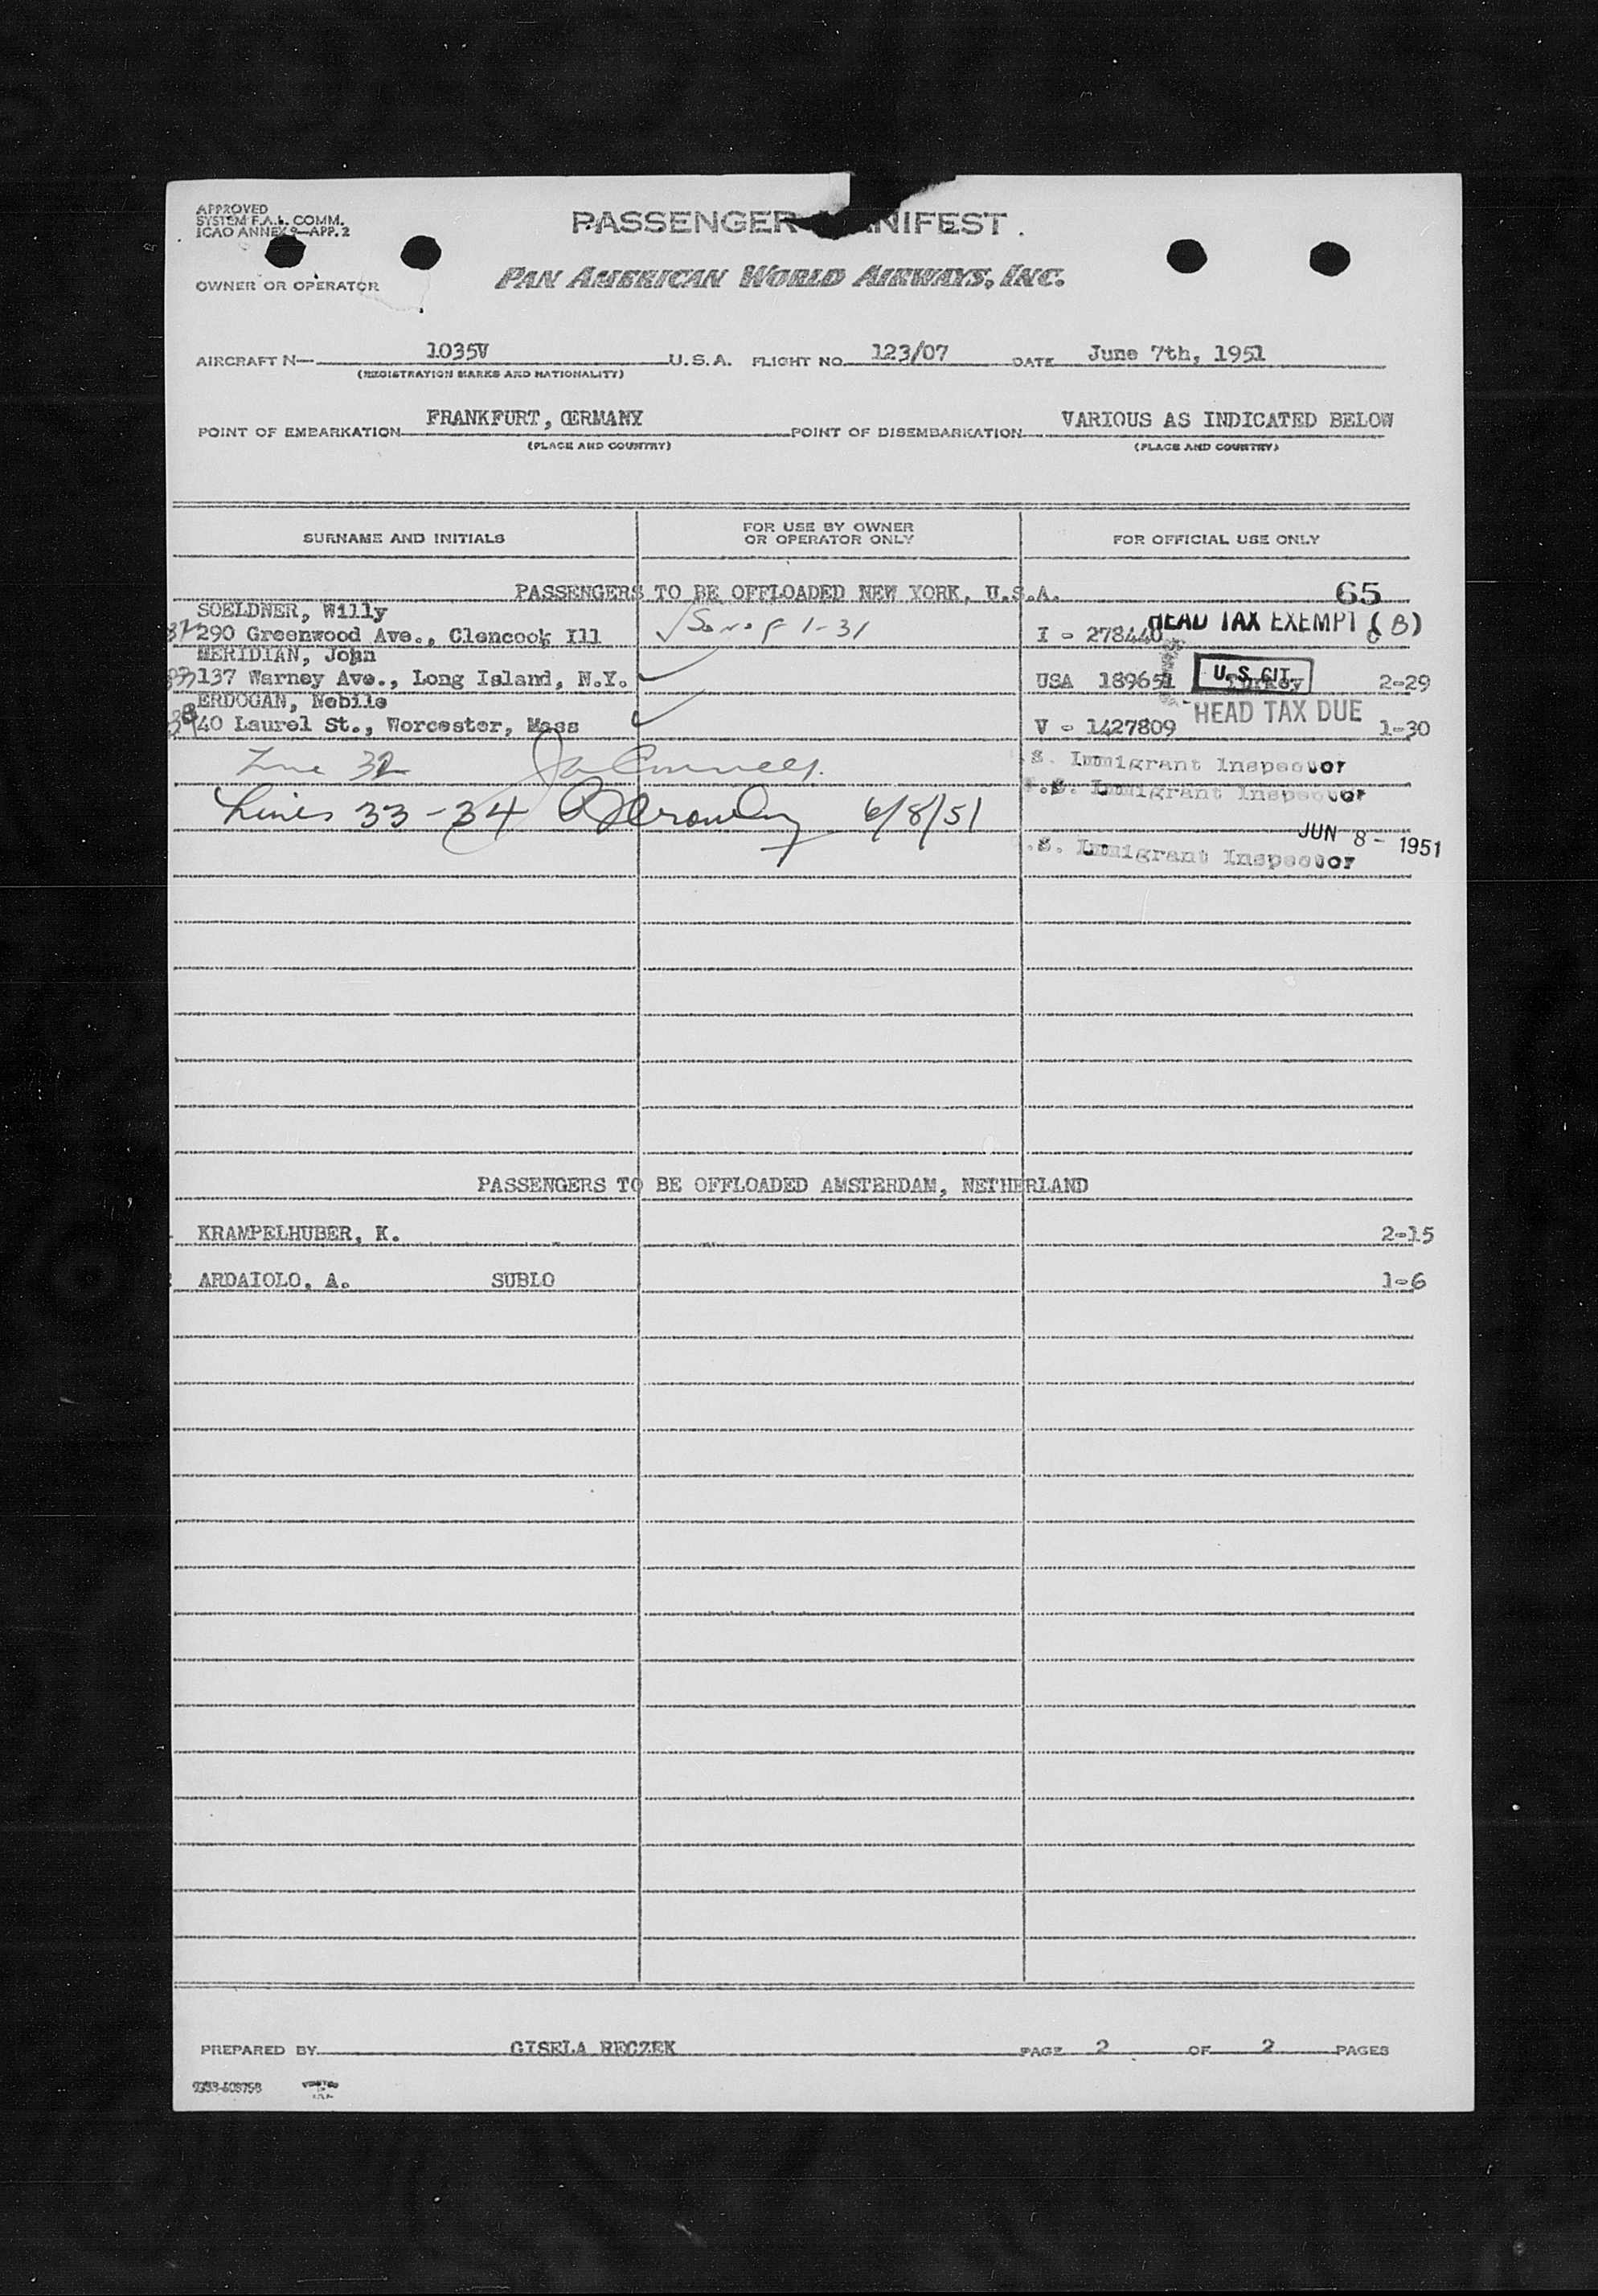 APPROVED
SYSTEM F.A.L. COMM.
ICAO ANNEX 9—APP. 2
PASSENGER MANIFEST
OWNER OR OPERATOR
PAN AMERICAN WORLD AIRWAYS, INC.
AIRCRAFT N— 1035V U.S.A. FLIGHT NO. 123/07 DATE June 7th, 1951
(REGISTRATION MARKS AND NATIONALITY)
POINT OF EMBARKATION FRANKFURT, GERMANY POINT OF DISEMBARKATION VARIOUS AS INDICATED BELOW
(PLACE AND COUNTRY) (PLACE AND COUNTRY)
SURNAME AND INITIALS FOR USE BY OWNER OR OPERATOR ONLY FOR OFFICIAL USE ONLY
PASSENGERS TO BE OFFLOADED NEW YORK, U.S.A. 65
SOELDNER, Willy HEAD TAX EXEMPT (B)
32 290 Greenwood Ave., Clencook Ill √ 1-31 I - 278440
MERIDIAN, John U.S. CIT.
33 137 Warney Ave., Long Island, N.Y. USA 189651 Turkey 2-29
ERDOGAN, Nebile HEAD TAX DUE
34 40 Laurel St., Worcester, Mass V - 1427809 1-30
Line 32 S. Immigrant Inspector
.S. Immigrant Inspector
Lines 33-34 6/8/51
JUN 8 - 1951
.S. Immigrant Inspector
PASSENGERS TO BE OFFLOADED AMSTERDAM, NETHERLAND
KRAMPELHUBER, K. 2-15
ARDAIOLO, A. SUBLO 1-6
PREPARED BY GISELA RECZEK PAGE 2 OF 2 PAGES